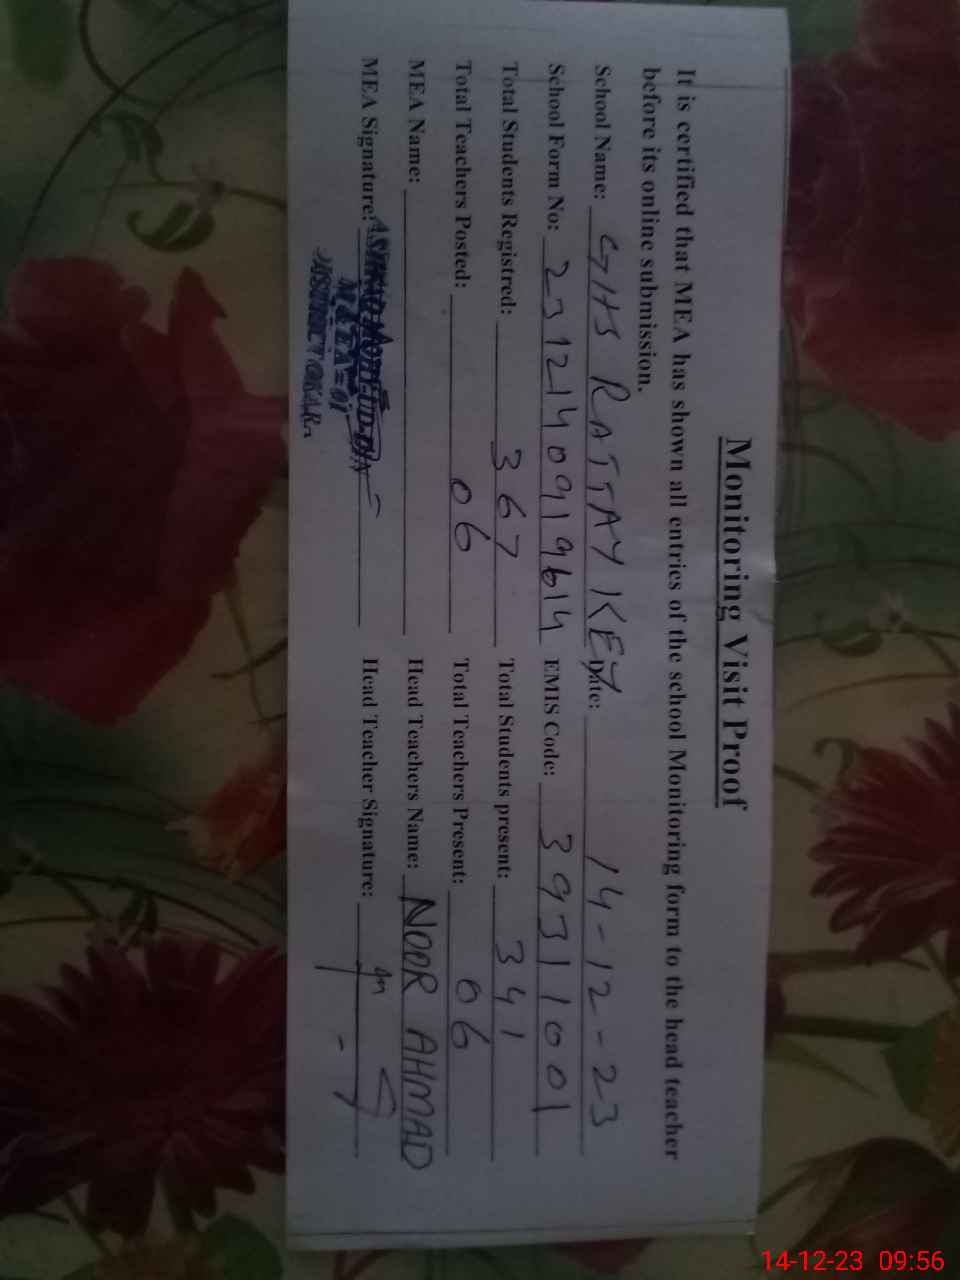 Monitoring Visit Proof
It is certified that MEA has shown all entries of the school Monitoring form to the head teacher
before its online submission.
School Name: GHS RATTAY KEY Date: 14-12-23
School Form No: 2312140919614 EMIS Code: 39311001
Total Students Registred: 367 Total Students present: 341
Total Teachers Posted: 06 Total Teachers Present: 06
MEA Name: Head Teachers Name: NOOR AHMAD
MEA Signature: Head Teacher Signature:
14-12-23 09:56